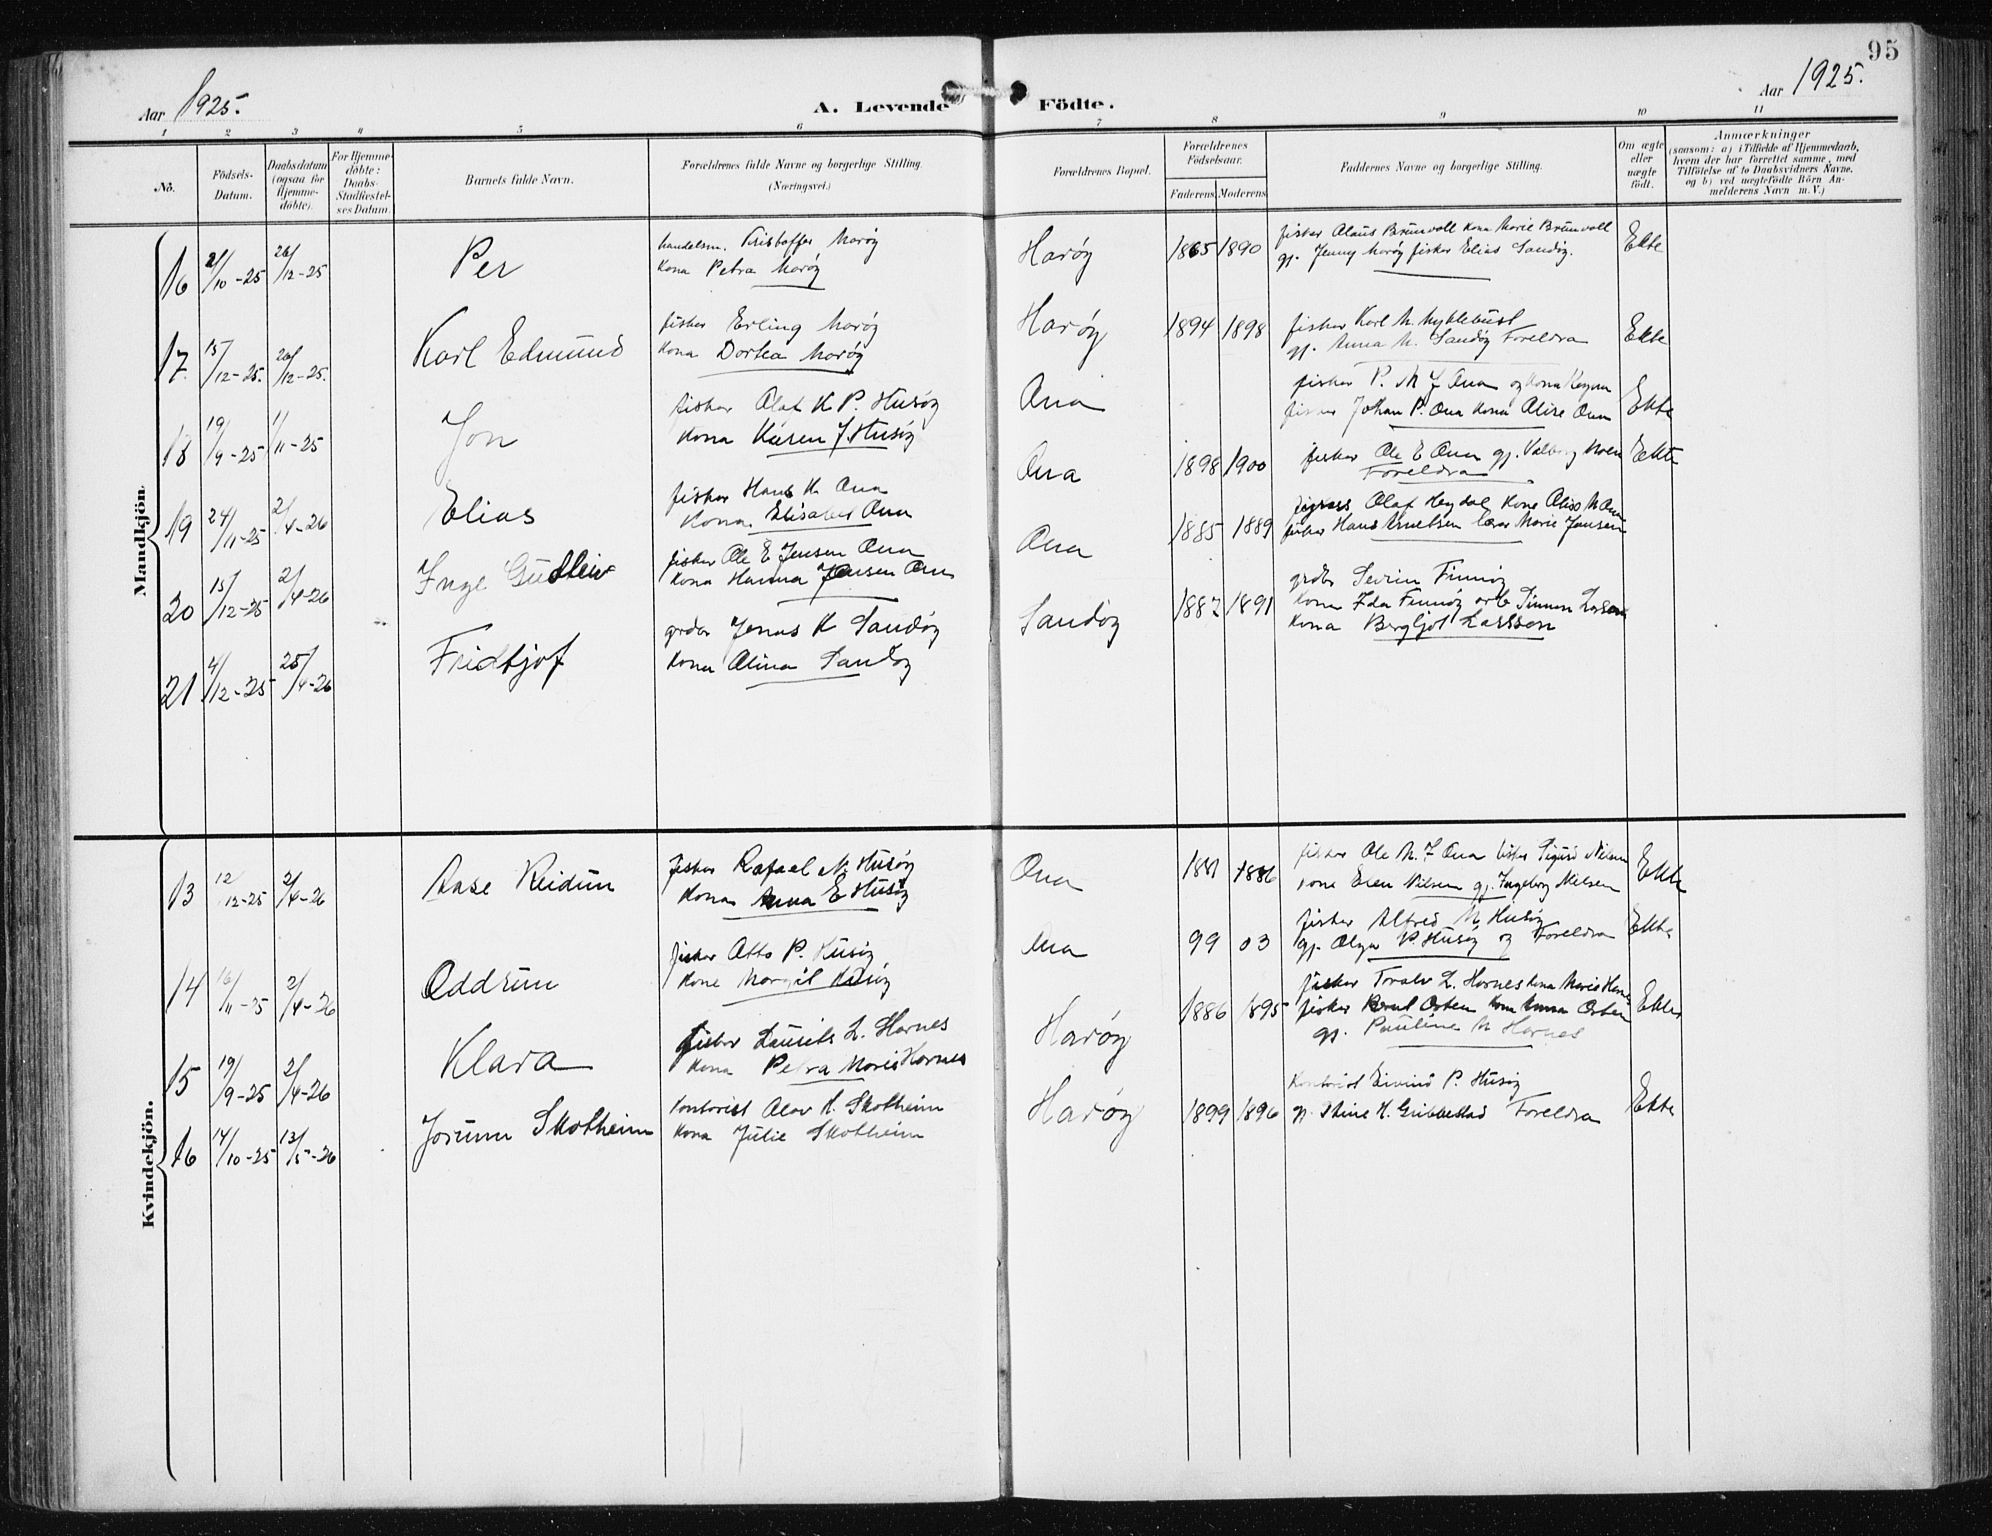 95
Aar 1925.
A. Levende Födte.
Aar 1925.
1 2 3 4 5 6 7 8 9 10 11
No.
Födsels-Datum.
Daabsdatum (ogsaa for Hjemme-döbte).
For Hjemme-döbte: Daabs-Stadfæstel-ses Datum.
Barnets fulde Navn.
Forældrenes fulde Navne og borgerlige Stilling.
(Næringsvei.)
Forældrenes Bopæl.
Forældrenes Födselsaar.
Faderens
Moderens
Faddernes Navne og borgerlige Stilling.
Om ægte eller uægte födt.
Anmærkninger
(saasom: a) i Tilfælde af Hjemmedaab,
hvem der har forrettet samme, med
Tilföielse af to Daabsvidners Navne,
og b) ved uægtefödte Börn An-
melderens Navn m. V.)
Mandkjön
16 2/10-25 26/12-25 Per
handelsm. Kristoffer Harøy
Kona Petra Harøy
Harøy 1865 1890
fisker Claus Brunvoll Kona Marie Brunvoll
gj. Jenny Harøy fisker Elias Sandøy.
Ekte
17. 15/12-25. 26/12-25. Karl Edmund
fisker Erling Harøy
Kona Dortea Harøy
Harøy 1894 1898
fisker Karl M. Myklebust
gj. Anna M. Sandøy Foreldra
Ekte
18 19/9-25 1/11-25 Jon
fisker Olaf K P. Husøy
Kona Karen J. Husøy
Ona
fisker P. M J Ona og Kona
fisker Johan P. Ona Kona Alise Ona
Ekte
19 24/11-25 2/4-26 Elias
fisker Hans K. Ona
Kona Elisabet Ona
Ona 1898 1900
fisker Ole E Ona gj. Valborg Moen
Foreldra
Ekte
20 15/12-25 2/4-26 Inge Gudleiv
fisker Ole E Jensen Ona
Kona Hanna Jensen Ona
Ona 1885 1889
Olaf Heydal Kone
fisker Hans Knutsen Marie Jansen
21 4/12-25 25/4-26 Fridtjof
grdbr Jonas K Sandøy
Kona Alina Sandøy
Sandøy 1887 1891
grdbr Severin Finnøy
Kona Ida Finnøy arb Larssen
Kona Bergljot Larssen
Kvindekjön.
13 12/12-25 2/4-26 Aase Reidun
fisker Rafael N. Husøy
Kona Anna E Husøy
Ona 1881 1886
fisker Ole M. J Ona fisker Sigurd Nilsen
kone Nilsen gj. Ingeborg Nilsen
Ekte
14 16/11-25 2/4-26 Oddrun
fisker Otto P. Husøy,
Kone Margit Husøy
Ona 99 03
fisker Alfred M Husøy
gj. Olga P. Husøy og Foreldra
Ekte
15 19/9-25 2/4-26 Klara
fisker Laurits L. Harnes
Kona Petra Marie Harnes
Harøy 1886 1895
fisker Toralv L. Harnes Kona Marie Harnes
fisker Bernt Orten Kona Anna Orten
gj. Pauline M Harnes
Ekte
16 14/10-25 13/5-26 Jorunn Skotheim
Kontorist Olav K. Skotheim
Kona Julie Skotheim
Harøy 1899 1896
Kontorist Eivind P. Husøy
gj. Stine K. Gribbestad Foreldra
Ekte